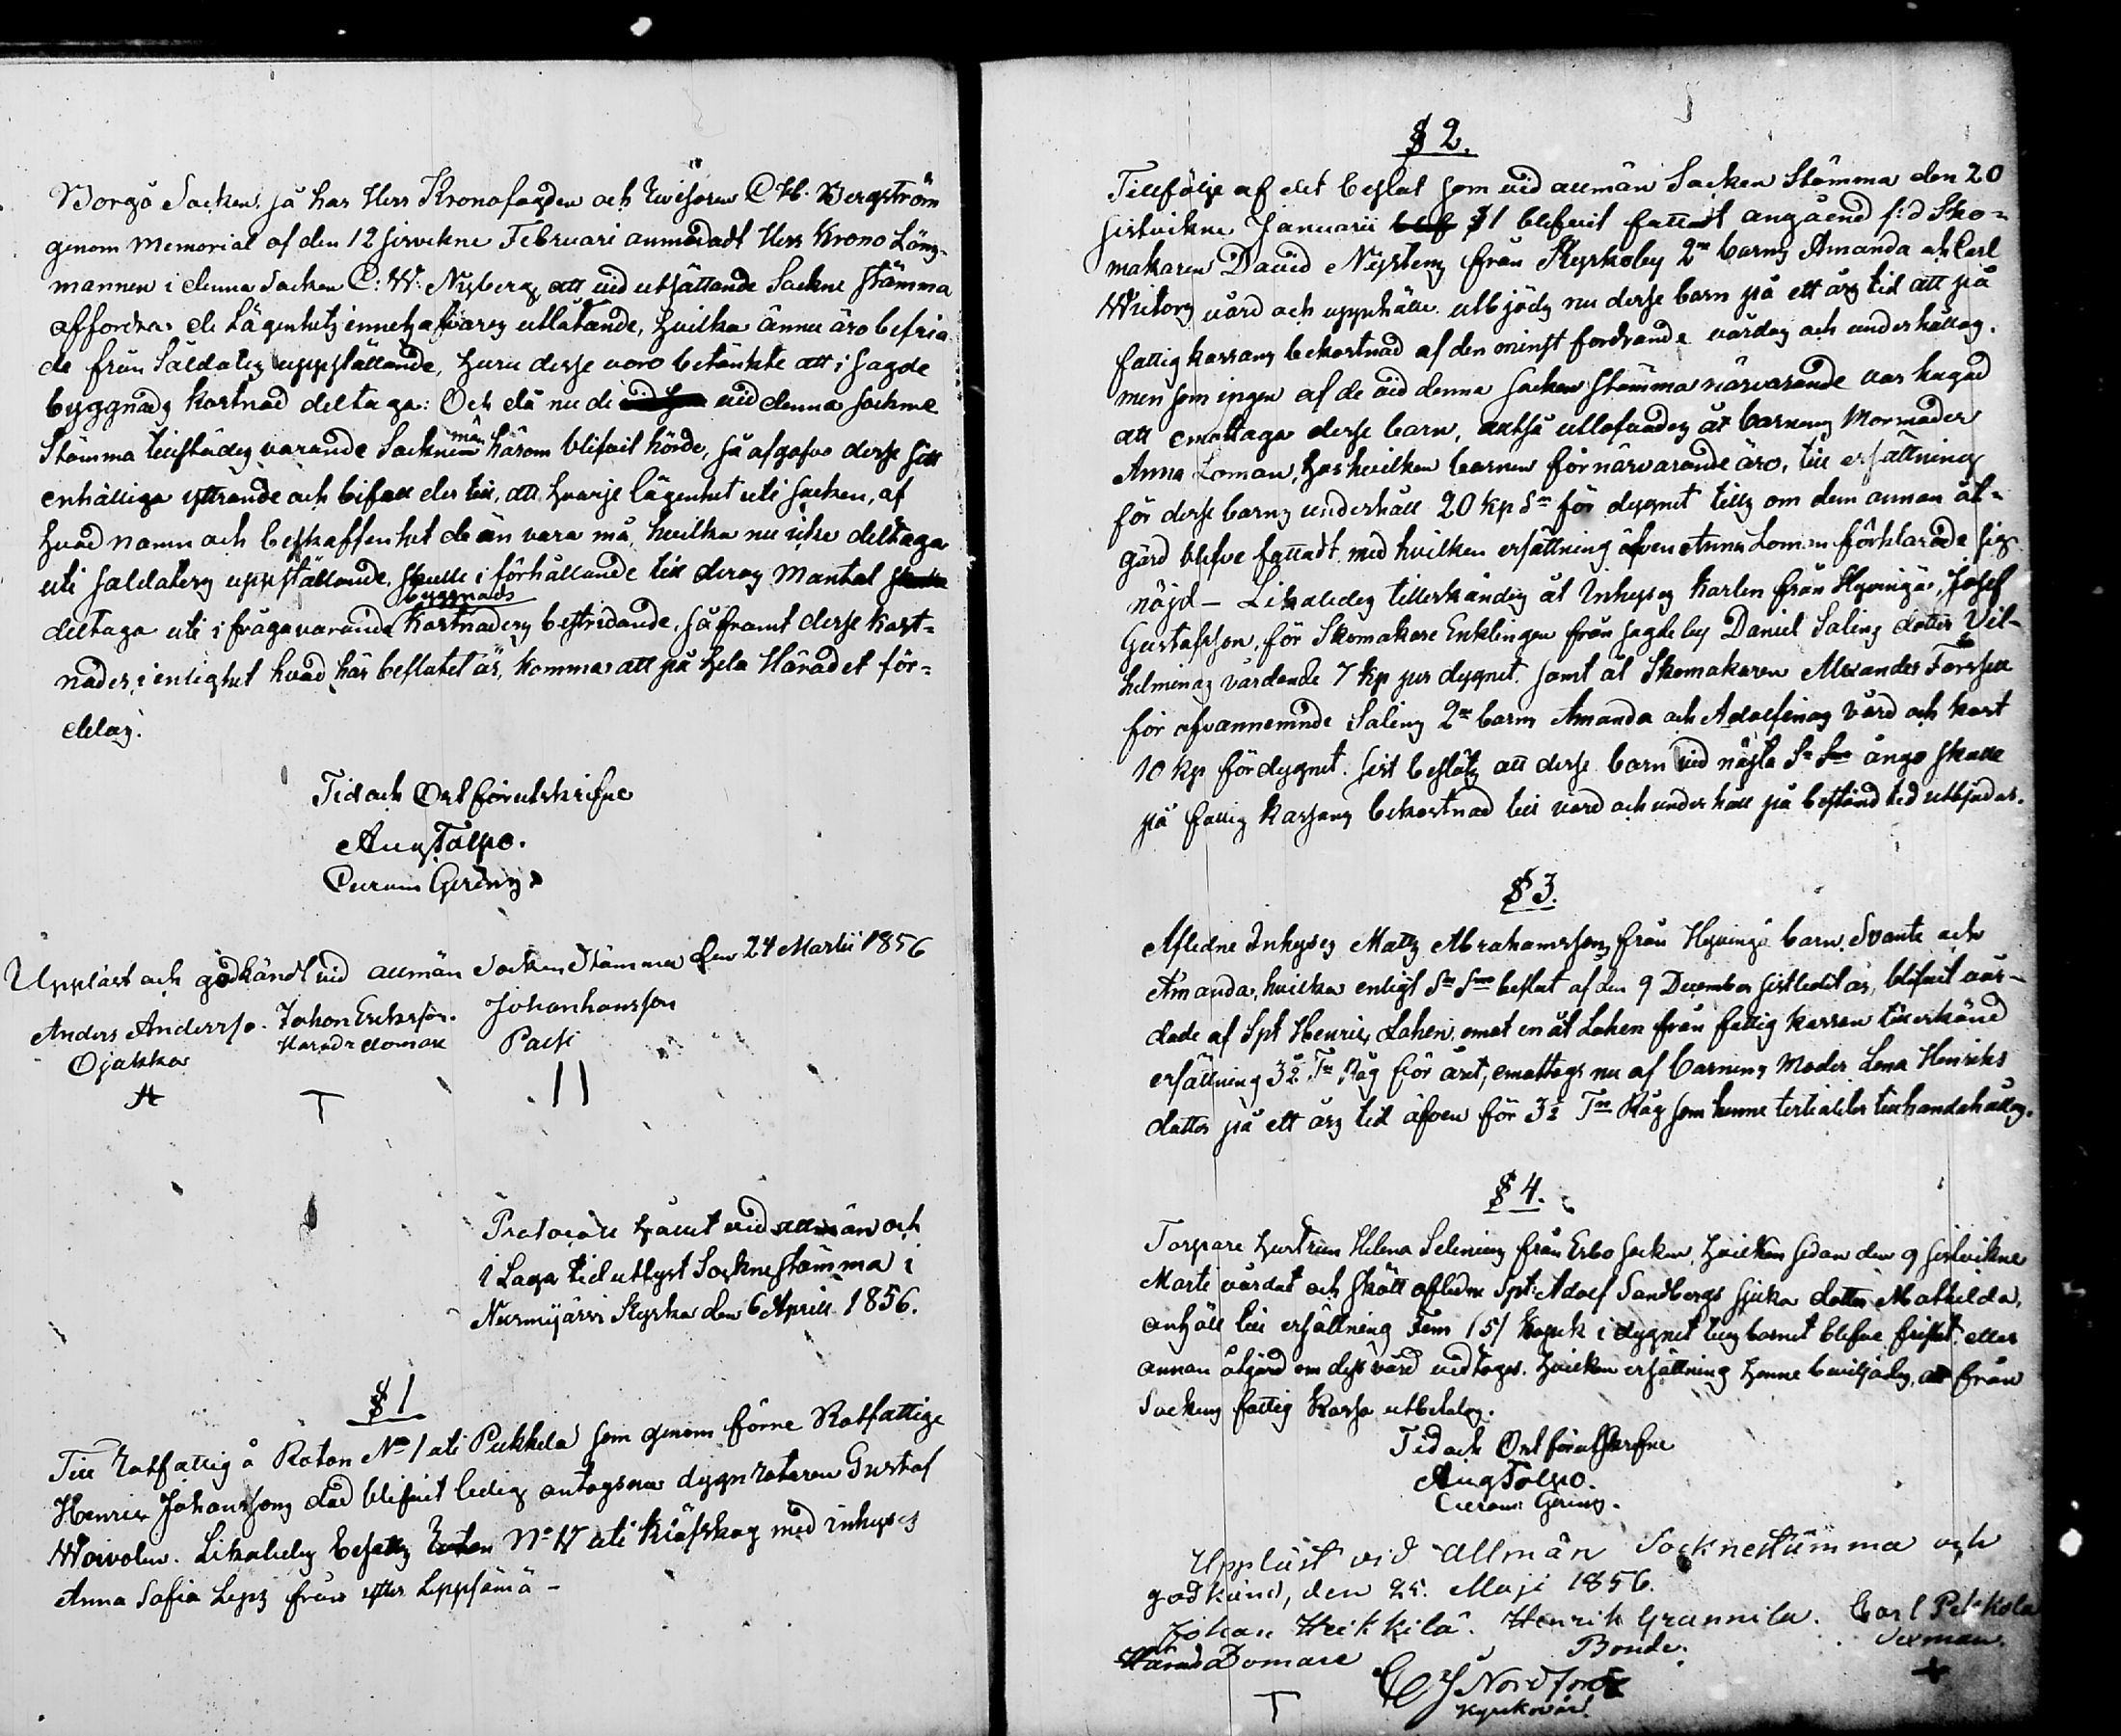 Borgå Socken, så har Herr Kronofogden och Revisoren C. H. Bergström
genom Memorial af den 12 sisvekne Februari anmodadt Herr Krono Läns-
mannen i denna Socken C: W: Nyberg, att vid utsättande Sockne stämma
affordra de Lägenhets innehafvares utlåtande, hvilka ännu äro befria
de från Såldatens uppställande, huru desse voro betänkte att i sagde
byggnads kostnad deltaga: Och då nu de vid denna Sockne
Stämma tillstädes varande Sockne män härom blifvit hörde, så afgofvo desse sitt
enhälliga yttrande och bifall der till, att hvarje lägenhet uti Socken, af
hvad namn och beskaffenhet de än vara må, hvilka nu icke deltaga
uti Saldatens uppställande, skulle i förhållande till deras Mantal
deltaga uti i frågavarande byggnads kostnadens bestridande, så framt desse kost-
nader, i enlighet hvad här beslutet är, komma att på hela Häradet för-
delas.
Tid och Ort förutskrifne
Aug Tolpo.
Curam Gerens
Uppläst och godkändt vid allmän Socken Stämma den 24 Martii 1856
Anders Andersso. Johon Erickssön. Johan hansson
Ojakka Härads domare Passi
A T II
Protocoll hållit vid allmän och
i Laga tid utlyst Sockne stämma i
Nurmijärvi Kyrka den 6 Aprill 1856.
§ 1
Till Rotfattig å Roton No 1 uti Pukkela som genom förne Rotfattige
Henric Johanssons död blifvit ledig antogs nu
Gustaf
Likaledes besattes Roton No 17 uti med inhyses
Anna Sofia från Leppsämä -
§ 2.
Tillfölje af det beslut som vid allmän Socken Stämma den 20
sistvikne Januarii § 1 blifvit fattadt angående f:d Sko-
makaren David Nystens från Kyrkoby 2ne barns Amanda och Carl
Victors vård och uppehälle utbjöds nu desse barn på ett års tid att på
fattig kassans bekostnad af den minst fordrande vårdas och underhållas.
men som ingen af de vid denna Socken stämma närvarande var hugad
att emottaga desse barn, altså utlofvades åt barnens Mormoder
Anna Loman, hos hvilken barnen för närvarande äro, till ersättning
för desse barns underhåll 20 kp Sr för dygnet tills om dem annan åt-
gärd blefve fattadt med hvilken ersättning äfven Anna Loman förklarade sig
nöjd - Likaledes tillerkändes åt Inhyses Karlen från Hyvinge, Josef
Gustafsson, för Skomakare Enklingen från sagde by Daniel Salins dotter Vil-
helminas vårdande 7 kp per dygnet. samt åt Skomakaren Alexander Forssell
för ofvannemnde Salins 2ne barns Amanda och Adolfinas vård och kost
10 kp för dygnet. sist beslöts att desse barn vid nästa Sn Sma ånyo skulle
på fattig kassans bekostnad till vård och underhåll på bestånd tid utbjudas.
§ 3.
Afledne Inhyses Matts Abrahamssons från Hyvinge barn Svante och
Amanda, hvilka enligt Sn Sma beslut af den 9 December sistledit år, blifvit vår-
dade af Spt Henric Lohen, emot en åt Lohen från fattig kassan tillerkänd
ersättning 3½ Tn Råg för året, emottogs nu af barnens Moder Lena Henriks
dotter på ett års tid äfven för 3½ Tn Råg som henne tertialiter tillhandahålles.
§ 4.
Torpare hustrun Helena Selenius från Esbo Socken, hvilken sedan den 9 sistvikne
Marti vårdat och skött afledne Spt: Adolf Sandbergs sjuka dotter Mathilda,
anhöll till ersättning Fem (5) Kopek i dygnet tills barnet blefve friskt eller
annan åtgärd om dess vård vidtoges. hvilken ersättning henne beviljades, att från
Sockens fattig kassa utbetalas.
Tid och Ort förutskrefne
Aug Tolpo.
Curam Gerens.
Uppläst vid allmän Socknestämma och
godkänd, den 25. Maji 1856.
Johan Heikkilä. Henrik Grannila. Carl Pekkola
Härads Domare Bonde. Sexman.
T C J Nordfors +
Kyrkovärd.